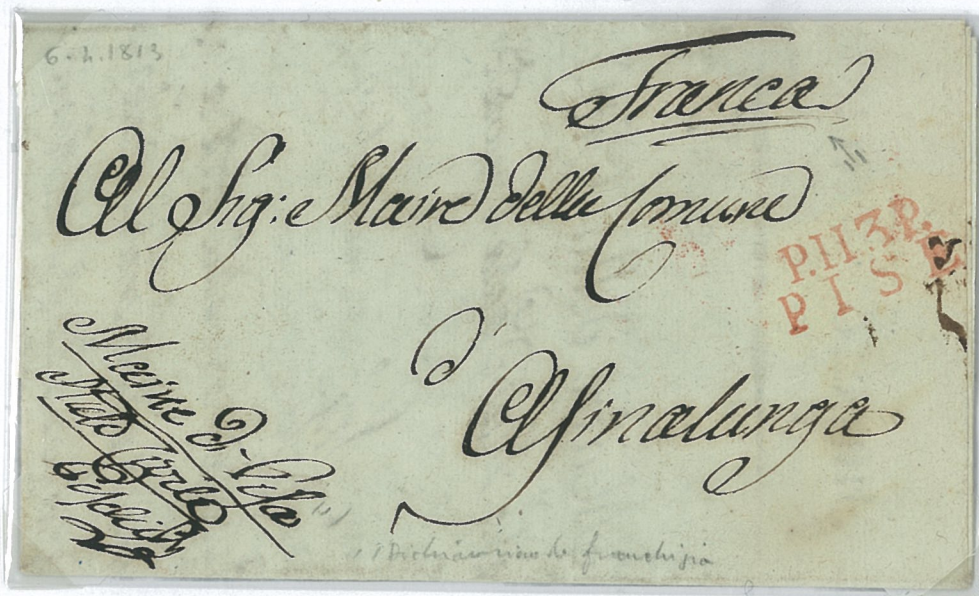 6.4.1813
Franca
Al Sig: Maire della Comune
P.113.P.
PISE
d'
Asinalunga
Maire di Pisa
Stato Civile
franchigia